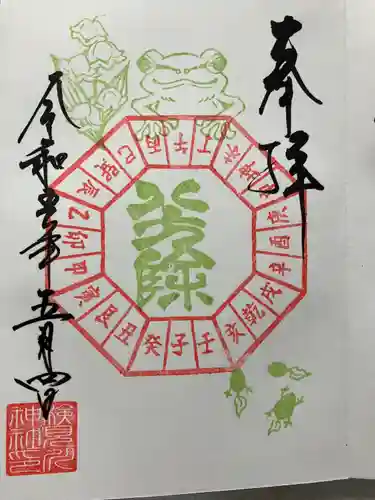 奉拝
八方除
丙午丁未坤申庚酉辛戌乾亥壬子癸丑艮寅甲卯乙辰巽巳
令和五年五月四日
検見川
神社印